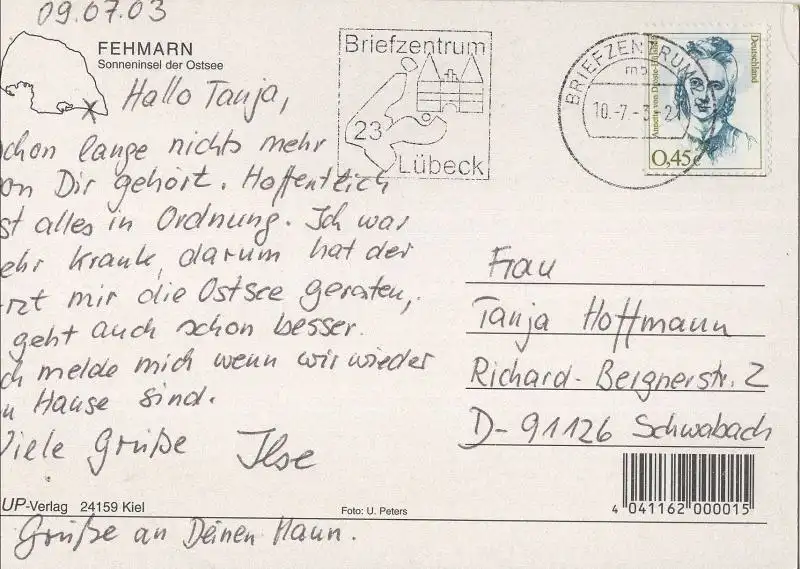 09.07.03
FEHMARN
Sonneninsel der Ostsee
Hallo Tanja,
chon lange nichts mehr
on Dir gehört. Hoffentlich
st alles in Ordnung. Ich war
ehr krank, darum hat der
rzt mir die Ostsee geraten,
geht auch schon besser.
ch melde mich wenn wir wieder
u Hause sind.
Viele Grüße Ilse
UP-Verlag 24159 Kiel
Grüße an Deinen Mann.
Foto: U. Peters
Briefzentrum
23
Lübeck
BRIEFZENTRUM
10.-7.-3.-21
Deutschland
0,45€
Frau
Tanja Hoffmann
Richard-Bergnerstr. 2
D-91126 Schwabach
4 041162 000015